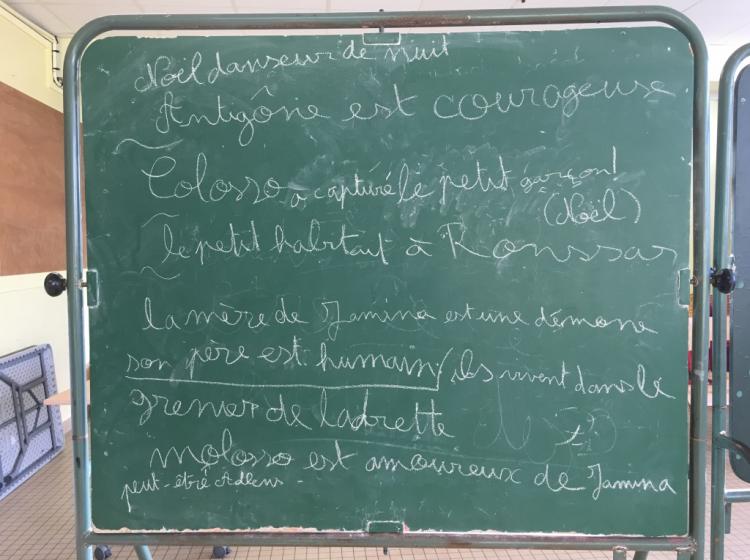 Noël danseur de nuit
Antigône est courageuse
Colosso a capturé le petit garçon!
(Noël)
le petit habitait à Ronssas
la mère de Jamina est une démone
son père est humain, ils vivent dans le
grenier de
molosso est amoureux de Jamina
peut-être